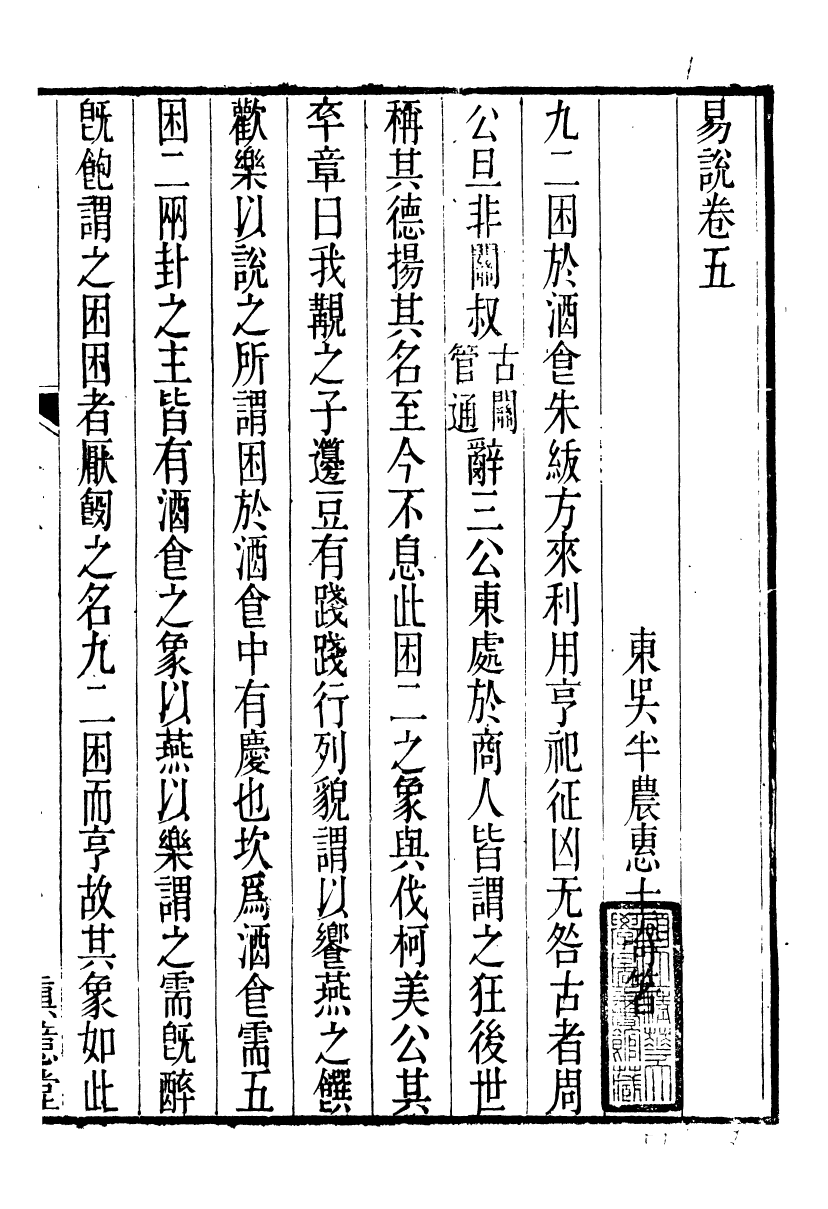 易說卷五
東吳半農惠士奇著
九二困於酒食朱紱方來利用亨祀征凶无咎古者周
公旦非關叔古關管通辭三公東處於商人皆謂之狂後世
稱其德揚其名至今不息此困二之象與伐柯美公其
卒章曰我覯之子籩豆有踐踐行列貌謂以饗燕之饌
歡樂以說之所謂困於酒食中有慶也坎爲酒食需五
困二兩卦之主皆有酒食之象以燕以樂謂之需旣醉
旣飽謂之困困者厭飫之名九二困而亨故其象如此
真意堂